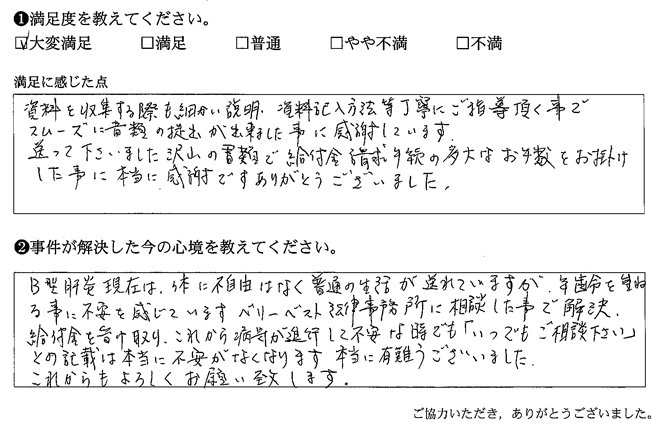 ❶満足度を教えてください。
☑大変満足 □満足 □普通 □やや不満 □不満
満足に感じた点
資料を収集する際も細かい説明、資料記入方法等丁寧にご指導頂く事で
スムーズに書類の提出が出来ました事に感謝しています。
送って下さいました沢山の書類で給付金請求手続の多大なお手数をお掛け
した事に本当に感謝です ありがとうございました。
❷事件が解決した今の心境を教えてください。
B型肝炎現在は、体に不自由はなく普通の生活が送れていますが、年齢を重ね
る事に不安を感じています ベリーベスト法律事務所に相談した事で解決、
給付金を受け取り、これから病気が進行して不安な時でも「いつでもご相談下さい」
との記載は本当に不安がなくなります 本当に有難うございました。
これからもよろしくお願い致します。
ご協力いただき、ありがとうございました。